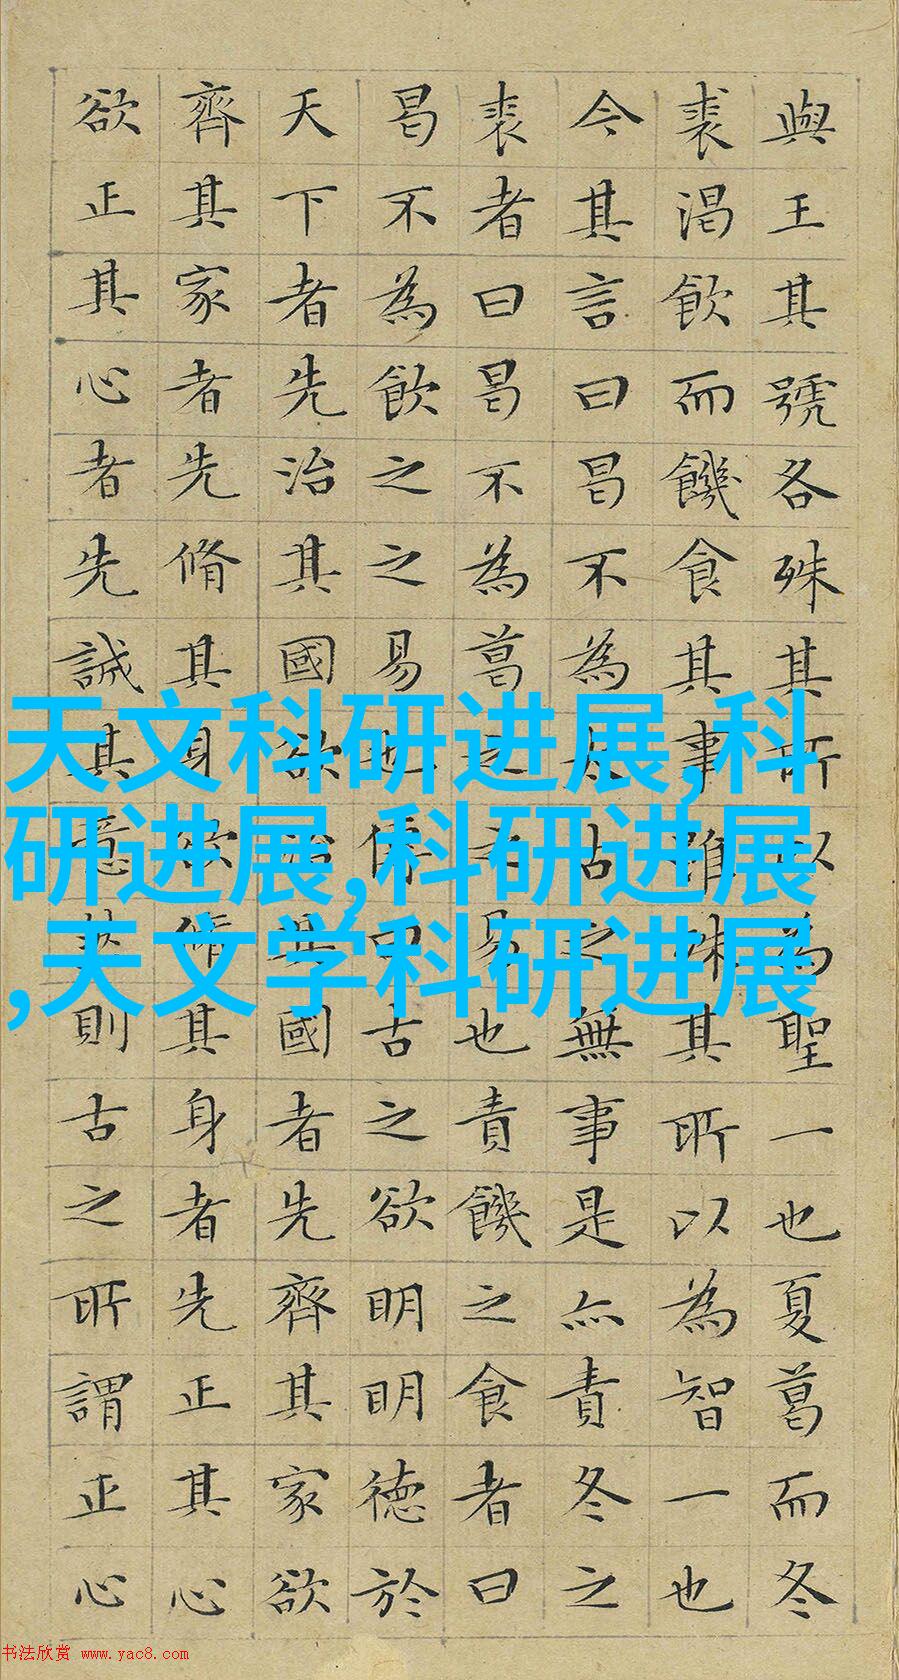 與王其號各殊其所以為聖一也夏葛而冬
裘渴飲而饑食其事雖殊其所以為智一也
今其言曰曷不為太古之無事是亦責冬之
裘者曰曷不為葛之之易也責饑之食者曰
曷不為飲之之易也傳曰古之欲明明德於
天下者先治其國欲治其國者先齊其家欲
齊其家者先脩其身欲脩其身者先正其心
欲正其心者先誠其意然則古之所謂正心
天文科研进展,科
研进展,科研进展
,天文学科研进展
书法欣赏 www.yac8.com